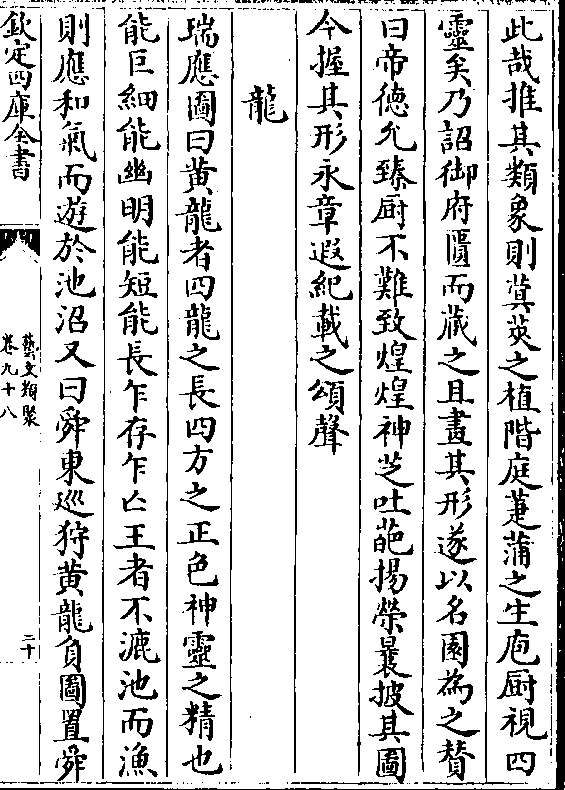 此哉推其類象則蓂莢之植階庭萐蒲之生庖厨視四
靈矣乃詔御府匱而藏之且畫其形遂以名園為之賛
曰帝德允臻厨不難致煌煌神芝吐葩揚榮曩披其圖
今握其形永章遐紀載之頌聲
龍
瑞應圖曰黄龍者四龍之長四方之正色神靈之精也
能巨細能幽明能短能長乍存乍亡王者不漉池而漁
則應和氣而遊於池沼又曰舜東巡狩黄龍負圖置舜
欽定四庫全書
藝文類聚
卷九十八
二十